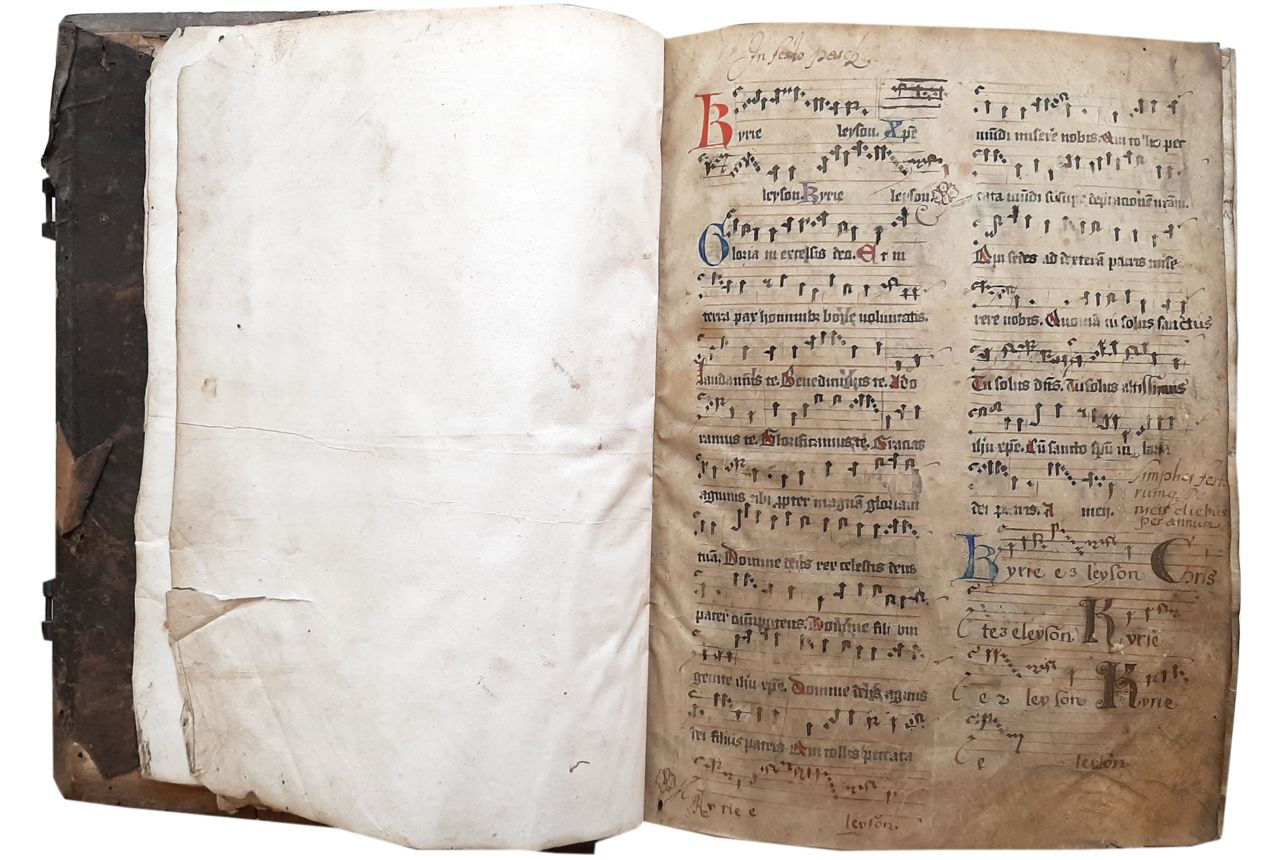 In festo pasch
Kyrie leyson. Xpe
leyson. Kyrie leyson.
Gloria in excelsis deo. Et in
terra pax hominibz bone voluntatis.
laudamus te. Benedicimus te. Ado
ramus te. Glorificamus te. Gracias
agimus tibi ppter magnā gloriam
tuā. Domine deus rex celestis deus
pater omīpotens. Domine fili uni
genite ihū xpē. Domine deus agnus
dei filius patris. Qui tollis peccata
Kyrie e leyson.
mūdi misere nobis. Qui tollis pec
cata mūdi suscipe deprecationē nrām.
Qui sedes ad dexterā patris mise
rere nobis. Quoniā tu solus sanctus
Tu solus dn̄s. Tu solus altissimus
ihū xpē. Cū sancto spū in gloria
dei patris. A men.
simplici fest
rumq
per annum
Kyrie e leyson Chris
te eleyson Kyrie
e leyson Kyrie
e leyson